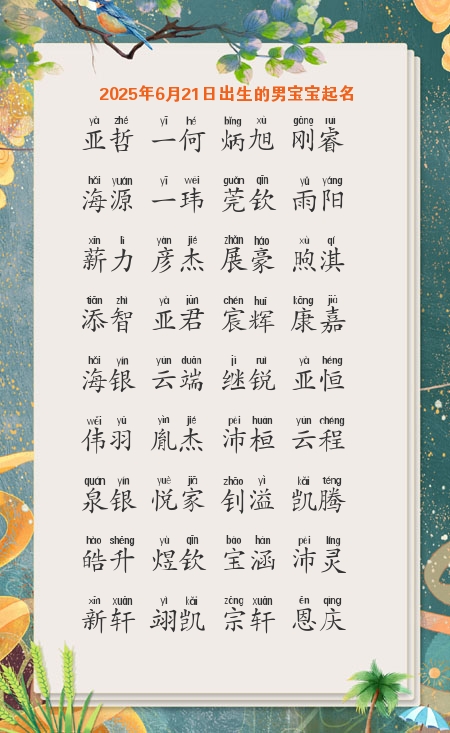 2025年6月21日出生的男宝宝起名
yà zhé yī hé bǐng xù gāng ruì
亚哲 一何 炳旭 刚睿
hǎi yuán yī wěi guān qīn yǔ yáng
海源 一玮 莞钦 雨阳
xīn lì yàn jié zhǎn háo xù qí
薪力 彦杰 展豪 煦淇
tiān zhì yà jūn chén huī kāng jiā
添智 亚君 宸辉 康嘉
hǎi yín yún duān jì ruì yà héng
海银 云端 继锐 亚恒
wěi yǔ yìn jié pèi huán yún chéng
伟羽 胤杰 沛桓 云程
quán yín yuè jiā zhāo yì kǎi téng
泉银 悦家 钊溢 凯腾
hào shēng yù qīn bǎo hán pèi líng
皓升 煜钦 宝涵 沛灵
xīn xuān yì kǎi zōng xuān ēn qìng
新轩 翊凯 宗轩 恩庆